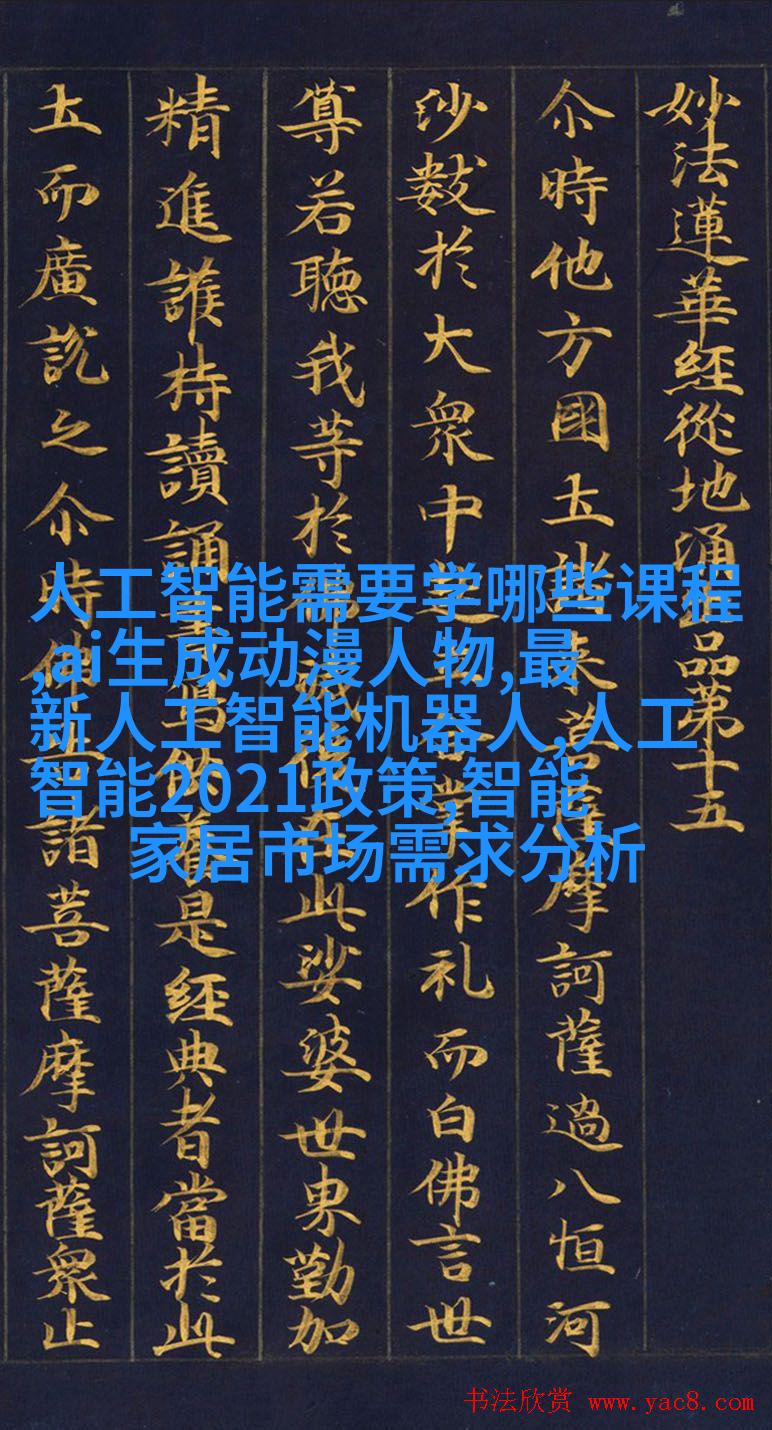 妙法蓮華經從地涌品第十五
尒時他方國土諸来菩薩摩訶薩過八恒河
沙數於大衆中合掌作礼而白佛言世
尊若聽我等於滅後在此娑婆世界勤加
精進護持讀誦寫供養是經典者當於此
土而廣説之尒時佛諸菩薩摩訶薩衆止
人工智能需要学哪些课程
,ai生成动漫人物,最
新人工智能机器人,人工
智能2021政策,智能
家居市场需求分析
书法欣赏 www.yac8.com